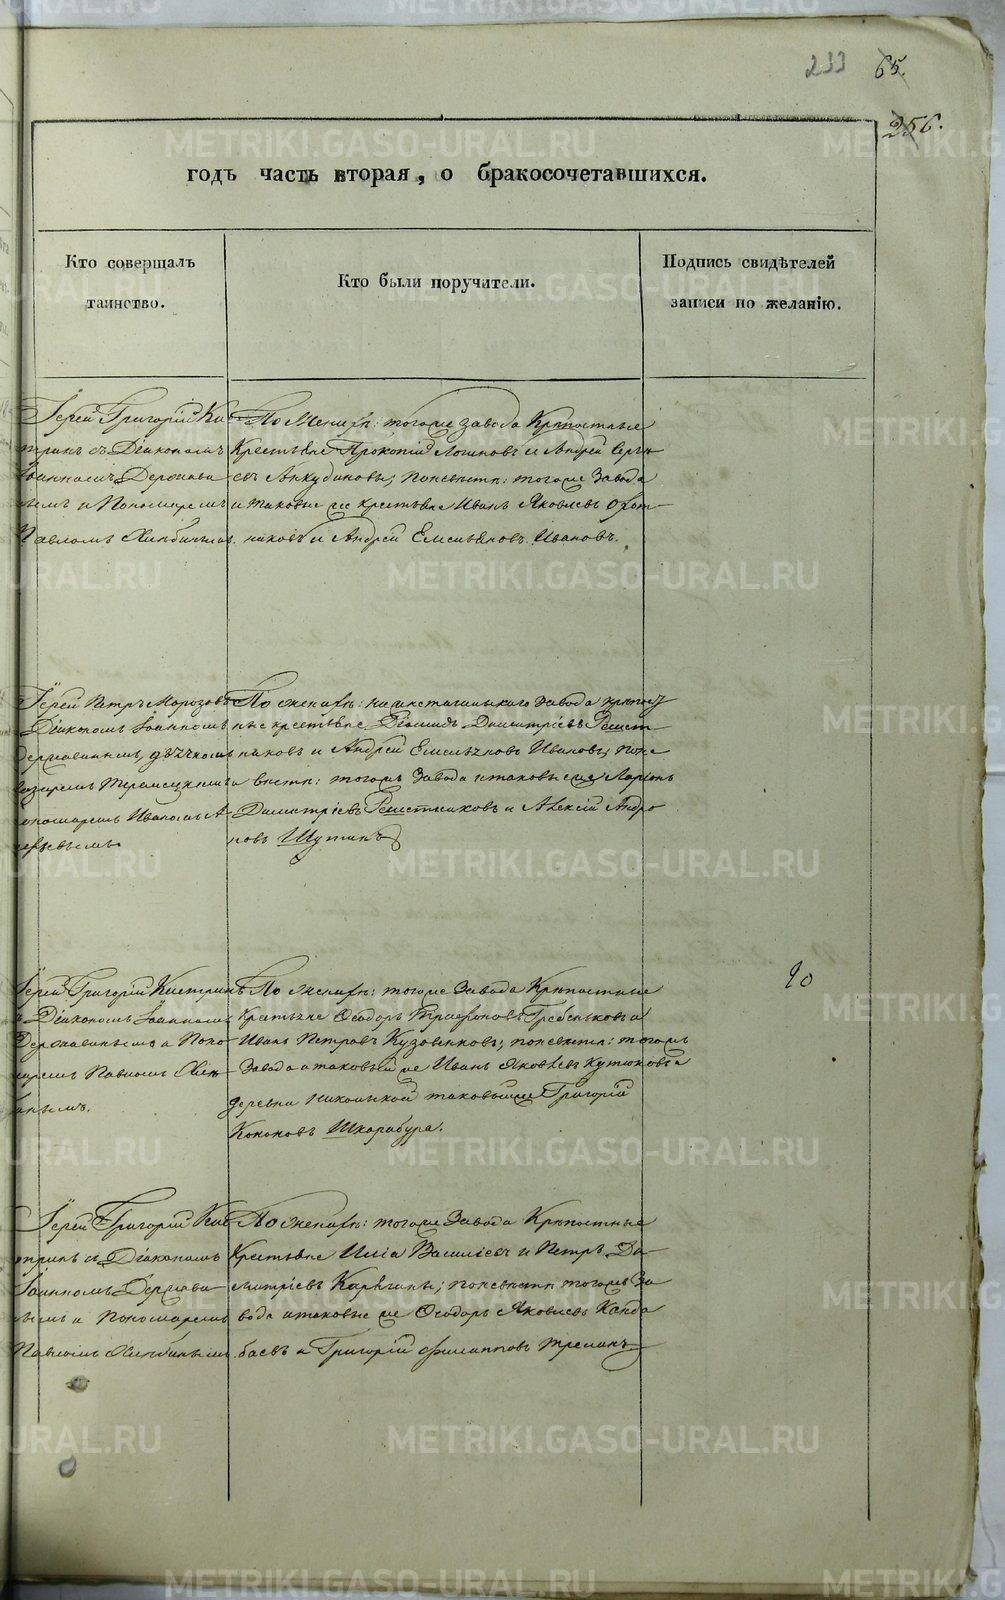 233 65.
256.
годъ часть вторая, о бракосочетавшихся.
Кто совершалъ
таинство.
Кто были поручители.
Подпись свидѣтелей
записи по желанію.
Іерей Григорій Ки-
стринъ съ Діакономъ
Іоанномъ Держави
нымъ и Пономаремъ
Павломъ
По Женихѣ: тогоже завода Крѣпостные
Крестьяне Прокопій Логиновъ и Андрей Сергѣ
евъ Анкудиновы; поневѣстѣ: тогоже Завода
и таковые же крестьяне Иванъ Яковлевъ Охот-
никовъ и Андрей Емельяновъ Ивановъ.
Іерей Петръ Морозовъ
Діакономъ Іоанномъ
Державинымъ, дьячкомъ
пономаремъ Иваномъ А-
По женихѣ: завода крѣпост
ные крестьяне Діомидъ Димитріевъ Решет
никовъ и Андрей Емельяновъ Ивановъ; поне
вѣстѣ: тогожъ Завода итаковые же Ларіонъ
Димитріевъ Решетниковъ и Алексій Андро
новъ Шутинъ
Іерей Григорій Кистринъ
съ Діакономъ Іоанномъ
Державинымъ и Поно
маремъ Павломъ
По женихѣ: тогоже Завода Крѣпостные
Крестьяне Ѳеодоръ Трифоновъ Гребеньковъ и
Иванъ Петровъ Кузовенковъ; поневѣстѣ: тогожъ
Завода и таковый же Иванъ Яковлевъ Кутюковъ и
деревни Никольской таковыйже Григорій
Кононовъ Шкарабура.
20
Іерей Григорій Кис
тринъ съ Діакономъ
Іоанномъ Держави
нымъ и Пономаремъ
Павломъ
По женихѣ: тогоже Завода Крѣпостные
Крестьяне Илія Василіевъ и Петръ Ди
митріевъ Карягины; поневѣстѣ тогоже За
вода итаковые же Ѳеодоръ Яковлевъ Канда
баевъ и Григорій Филипповъ Треминъ
METRIKI.GASO-URAL.RU